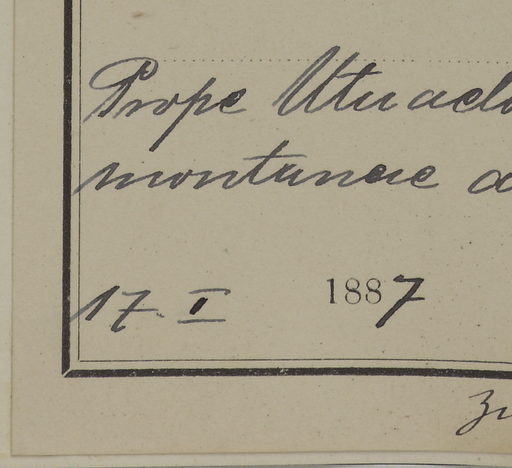 Prope Utuado
montanae a
17. I 1887